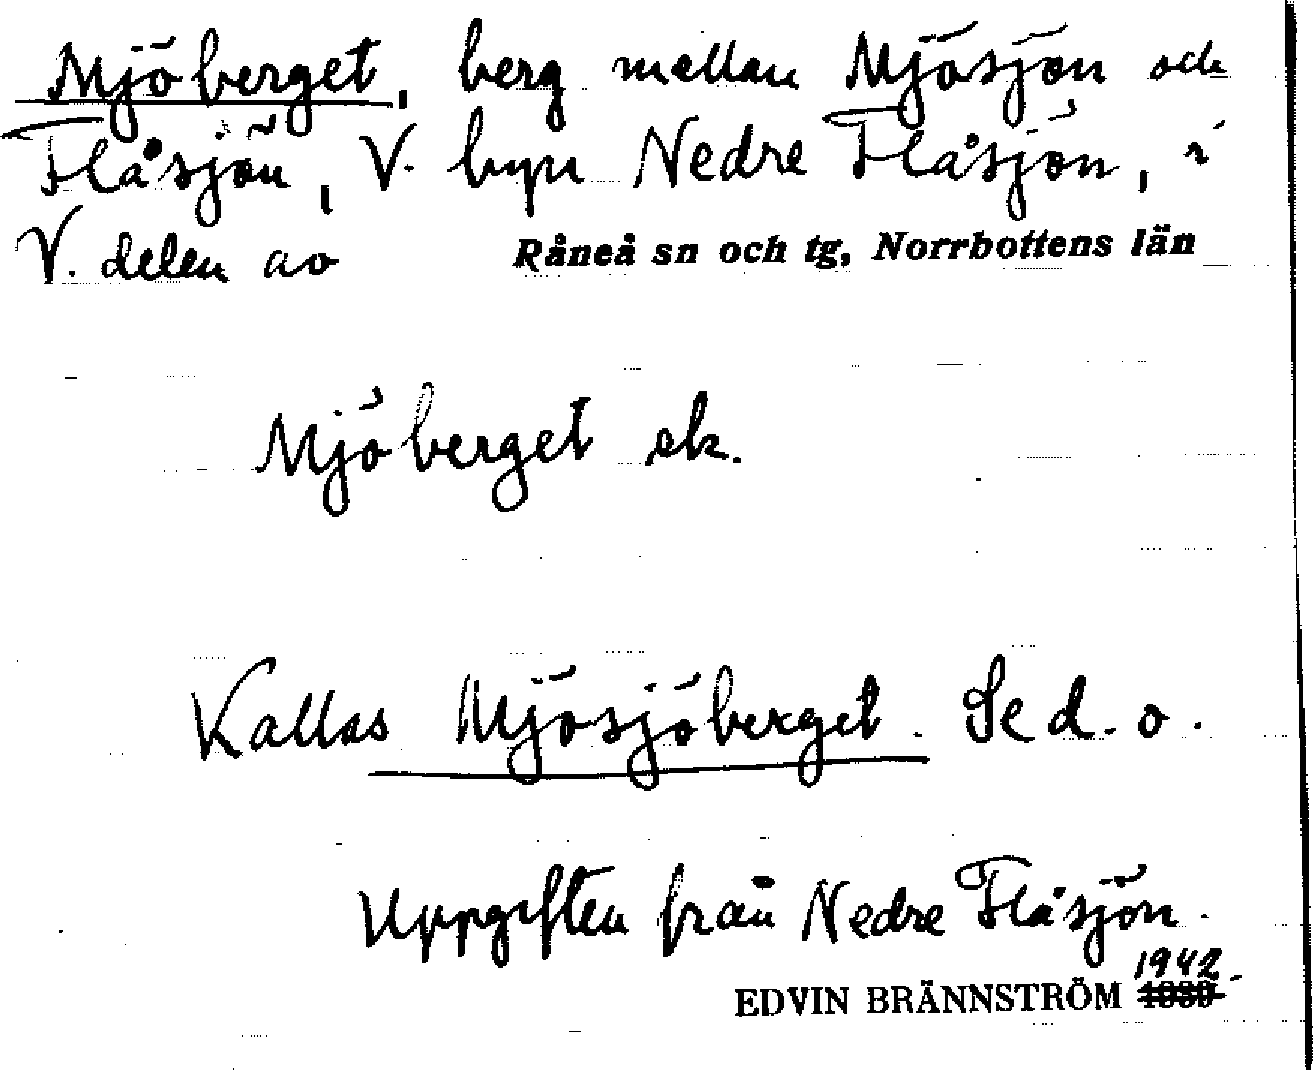 Mjöberget, berg mellan Mjösjön och
Flåsjön, V. byn Nedre Flåsjön, i
V. delen av Råneå sn och tg, Norrbottens län
Mjöberget ek.
Kallas Mjösjöberget. Se d. o.
Uppgiften från Nedre Flåsjön.
1942
EDVIN BRÄNNSTRÖM 1939